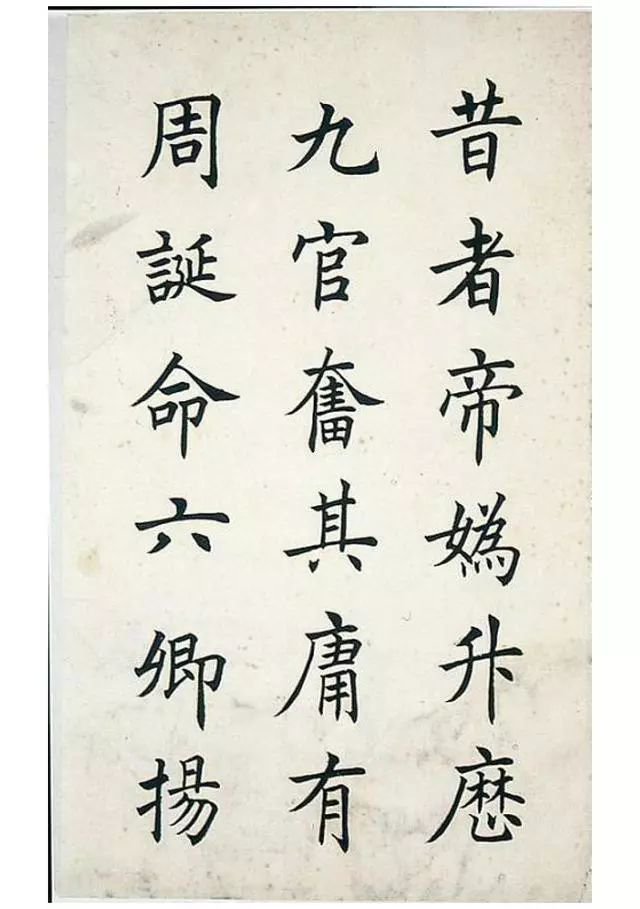 昔者帝媯升歷
九官奮其庸有
周誕命六卿揚